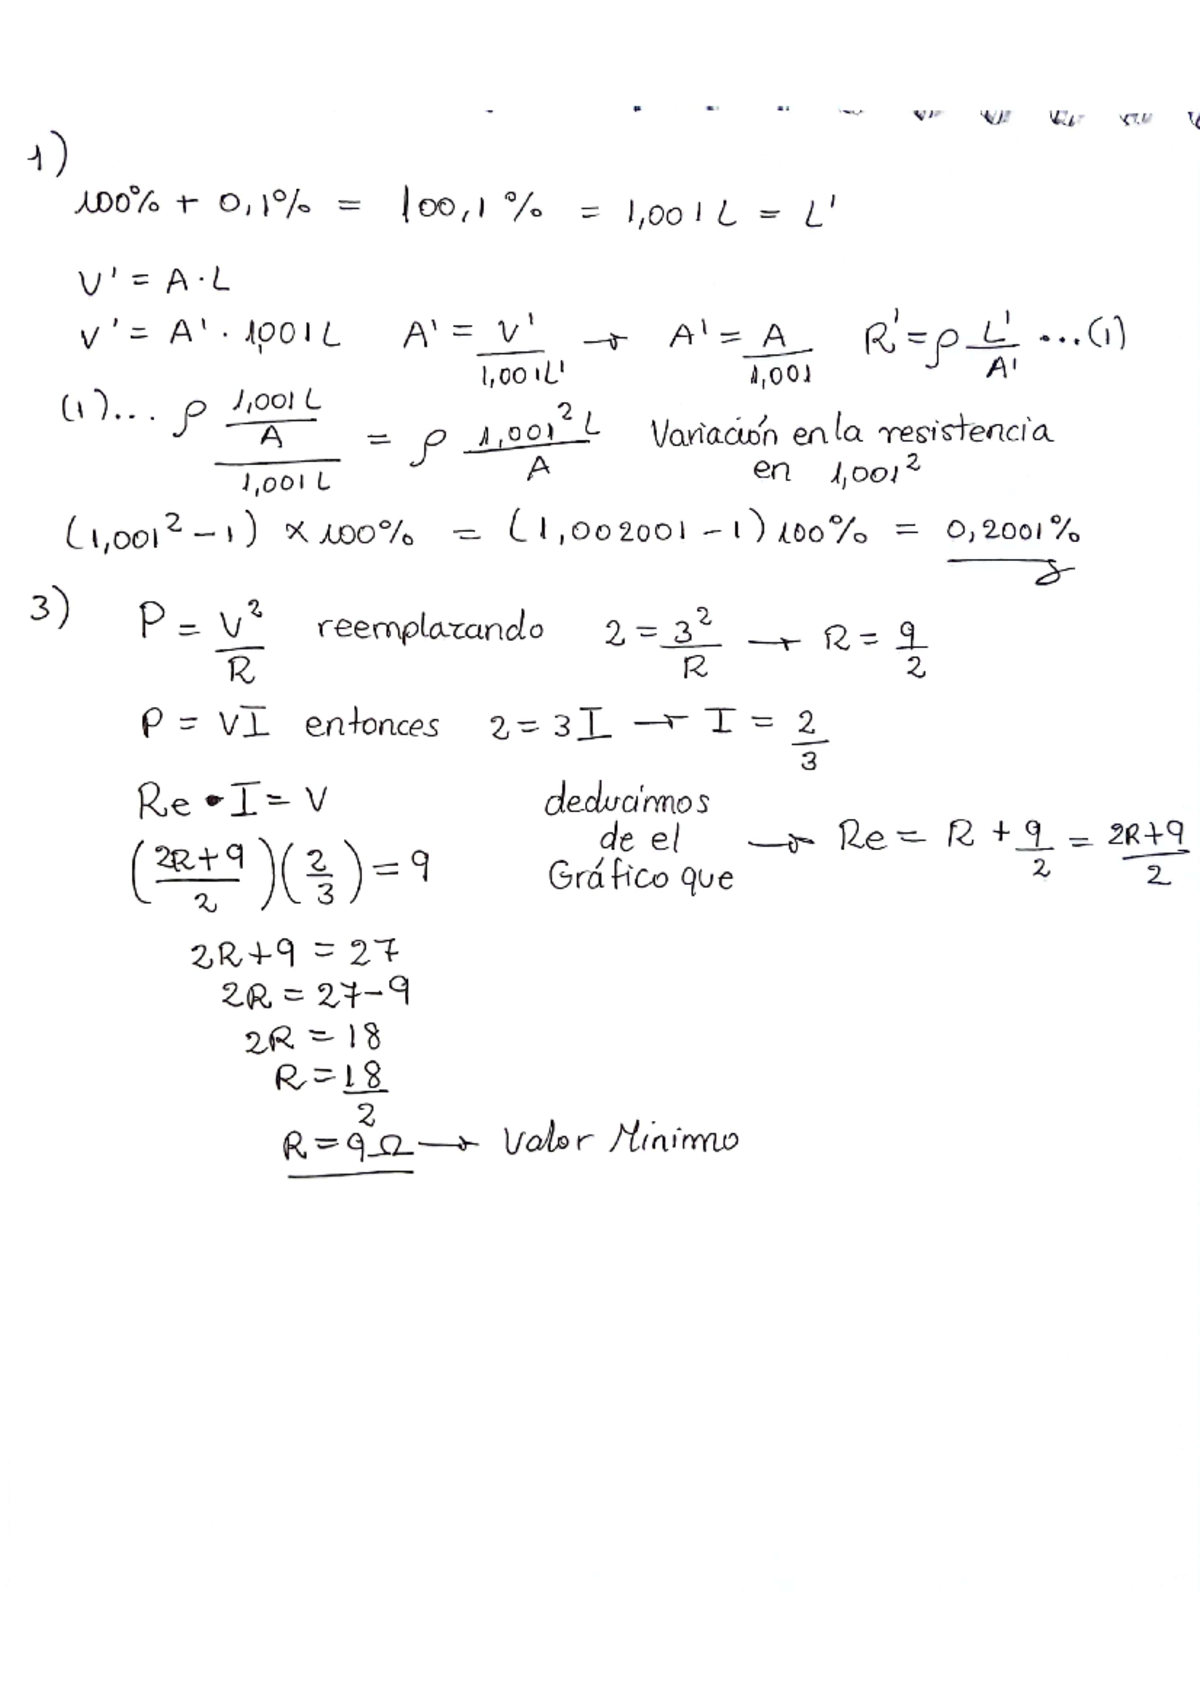 1)
100% + 0,1% = 100,1 % = 1,001 L = L'
V' = A · L
V' = A' · 1,001 L A' = V' / 1,001L' → A' = A / 1,001 R' = ρ L' / A' ...(1)
(1)... ρ 1,001 L / A / 1,001 L = ρ 1,001² L / A Variación en la resistencia
en 1,001²
(1,001² - 1) x 100% = (1,002001 - 1) 100% = 0,2001%
3) P = V² / R reemplazando 2 = 3² / R → R = 9 / 2
P = VI entonces 2 = 3 I → I = 2 / 3
Re · I = V deducimos
de el → Re = R + 9 / 2 = 2R+9 / 2
(2R+9 / 2)(2 / 3) = 9 Gráfico que
2R+9 = 27
2R = 27-9
2R = 18
R = 18 / 2
R = 9 Ω → Valor Minimo